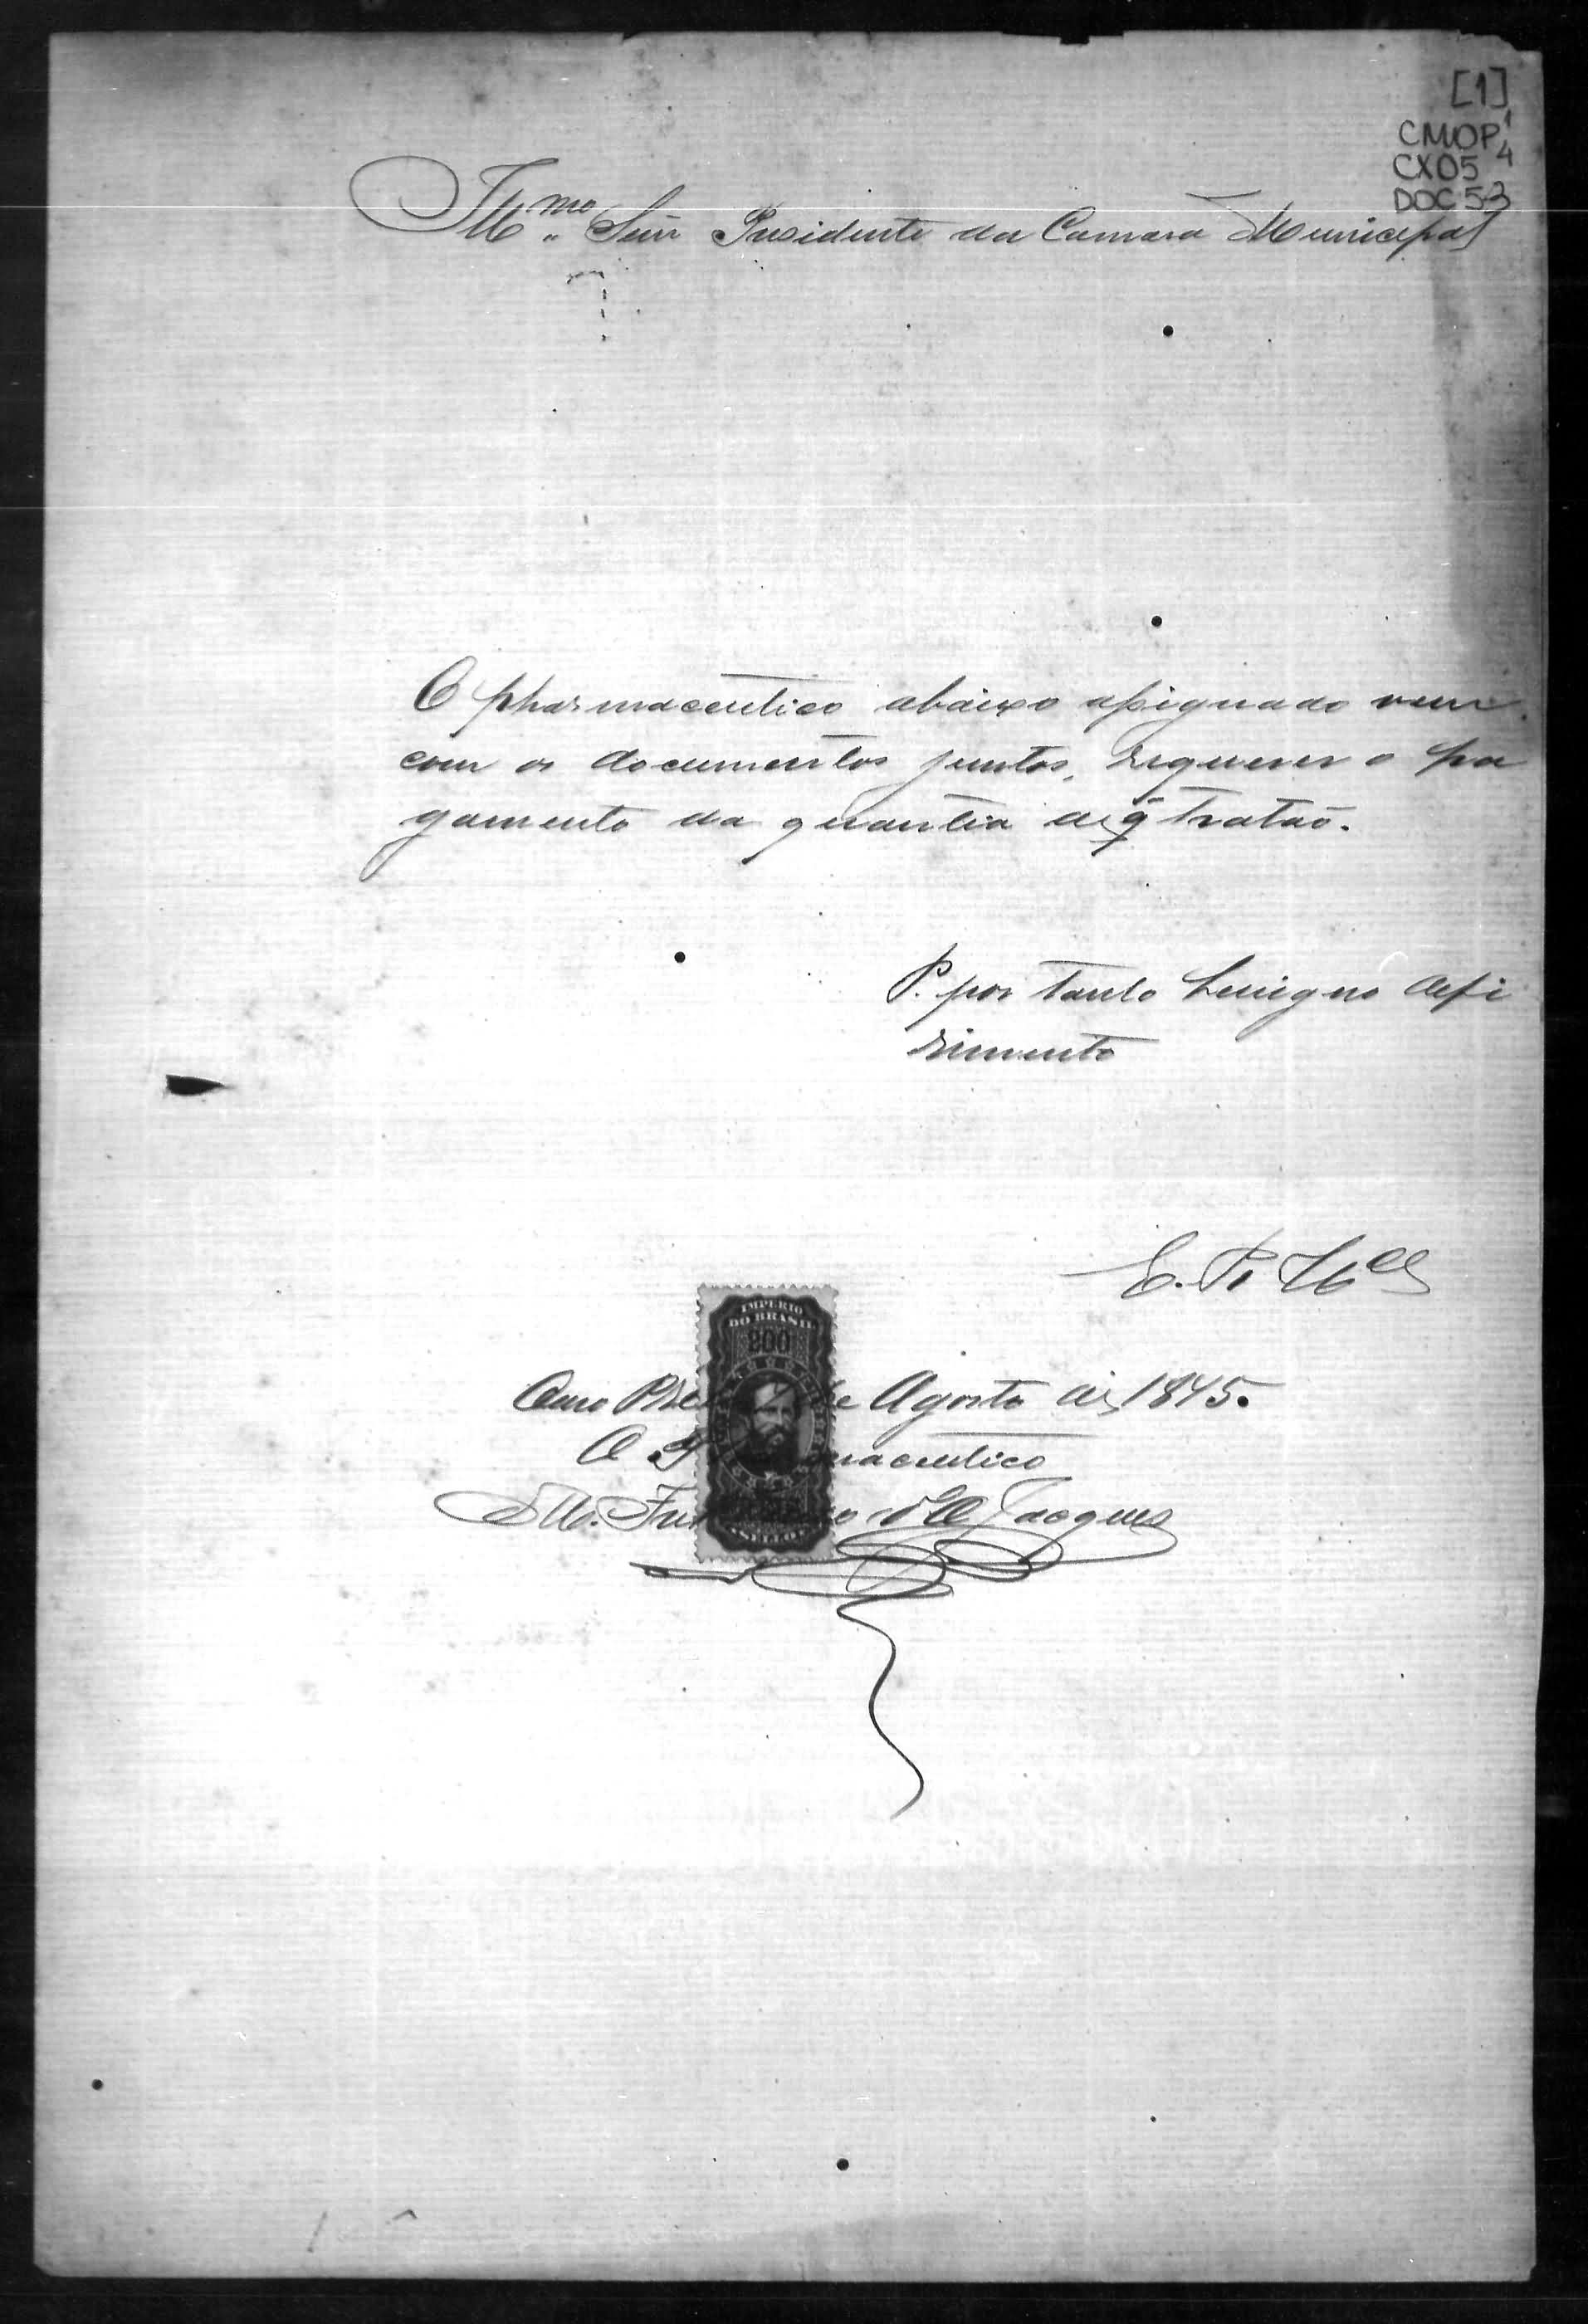 [1]
CMOP
CX05
DOC 53
Illmo Senr Presidente da Camara Municipal
O pharmaceutico abaixo assignado vem
com os documentos juntos, requerer o pa
gamento da quantia de q̃ tratão.
P. por tanto benigno defi
rimento
E. R. Mce
IMPERIO
DO BRASIL
200
Ouro Pre de Agosto de 1875.
O maceutico
d'A Jacques
SELLO